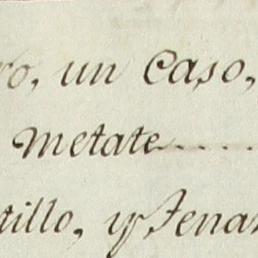 ro, un Caso,
metate.....
tillo, y Tena